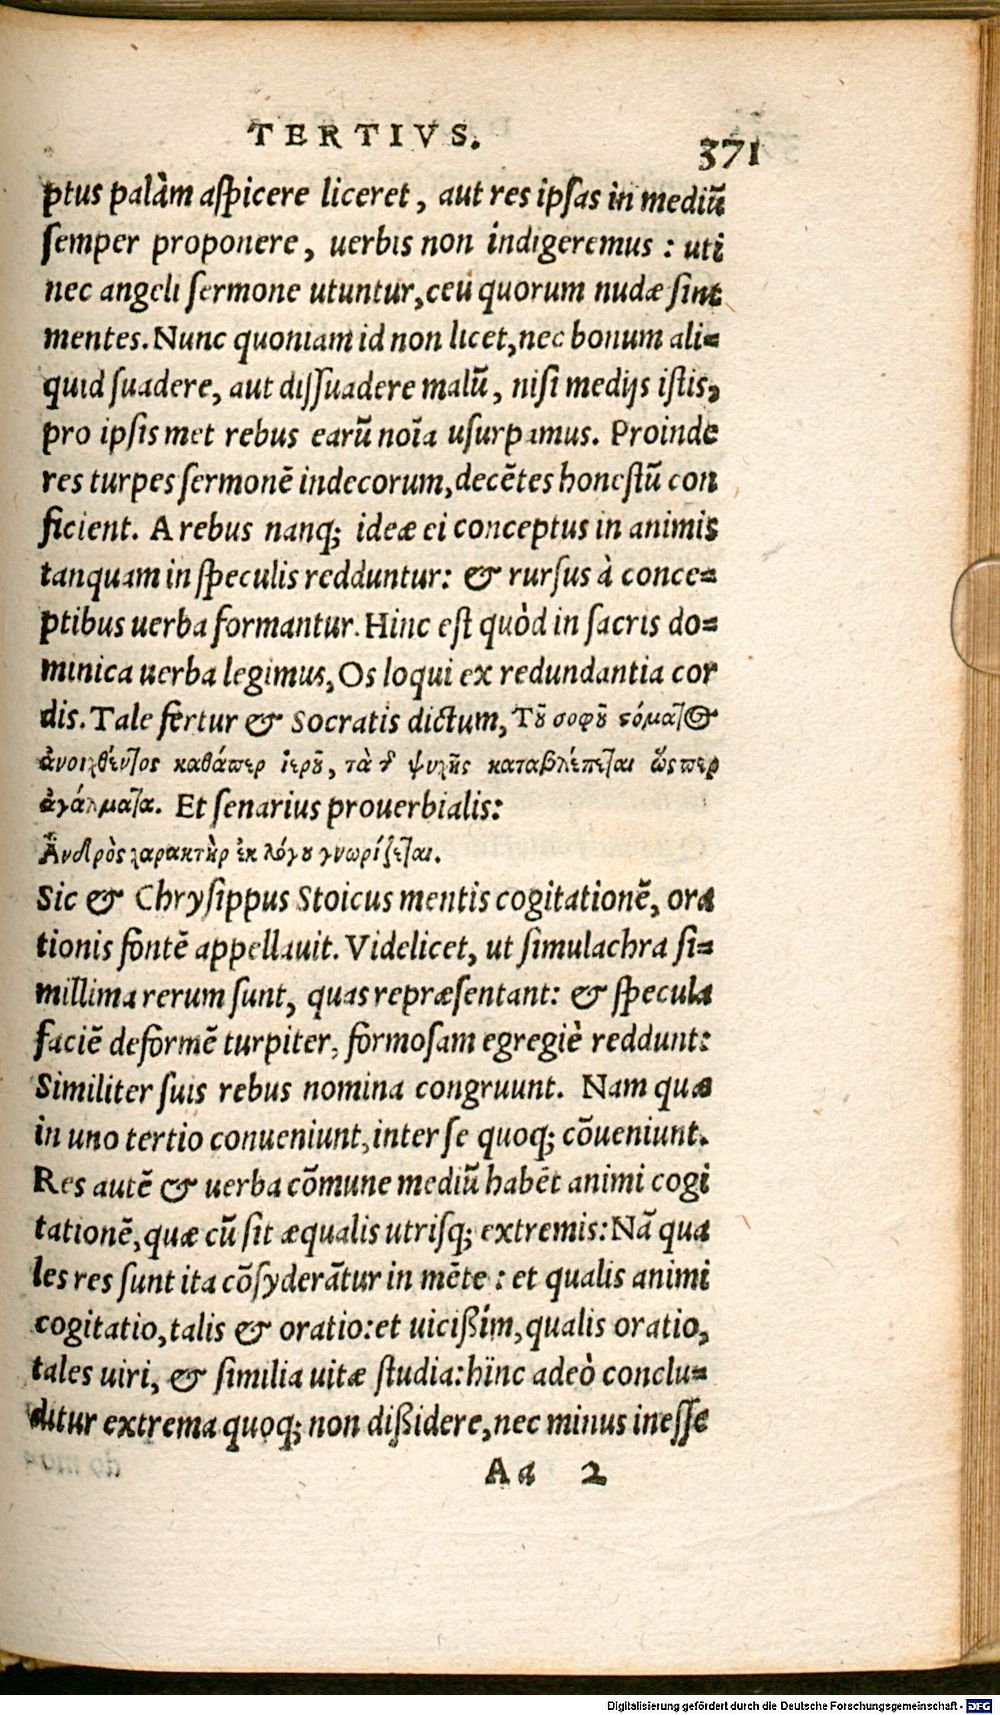 TERTIVS.
371
ptus palàm aſpicere liceret, aut res ipſas in mediũ
ſemper proponere, uerbis non indigeremus: uti
nec angeli ſermone utuntur, ceu quorum nudæ ſint
mentes. Nunc quoniam id non licet, nec bonum ali=
quid ſuadere, aut diſſuadere malũ, niſi medijs iſtis,
pro ipſis met rebus earũ noĩa uſurpamus. Proinde
res turpes ſermonẽ indecorum, decẽtes honeſtũ con
ficient. A rebus nanq; ideæ ei conceptus in animis
tanquam in ſpeculis redduntur: & rurſus à conce=
ptibus uerba formantur. Hinc eſt quòd in ſacris do=
minica uerba legimus, Os loqui ex redundantia cor
dis. Tale fertur & Socratis dictum, Τȣ͂ σοφȣ͂ ϛόμαϊος
ἀνοιχθέντος καθάπερ ἱερȣ͂, τὰ τ͂ ψυχῆς καταβλέπεται ὥσπερ
ἀγάλματα. Et ſenarius prouerbialis:
Ἀνδρὸς χαρακτὴρ ἐκ λόγȣ γνωρίζεται.
Sic & Chryſippus Stoicus mentis cogitationẽ, ora
tionis fontẽ appellauit. Videlicet, ut ſimulachra ſi=
millima rerum ſunt, quas repræſentant: & ſpecula
faciẽ deformẽ turpiter, formoſam egregiè reddunt:
Similiter ſuis rebus nomina congruunt. Nam quæ
in uno tertio conueniunt, inter ſe quoq; cõueniunt.
Res autẽ & uerba cõmune mediũ habẽt animi cogi
tationẽ, quæ cũ ſit æqualis utriſq; extremis: Nã qua
les res ſunt ita cõſyderãtur in mẽte: et qualis animi
cogitatio, talis & oratio: et uicißím, qualis oratio,
tales uiri, & ſimilia uitæ ſtudia: hinc adeò conclu=
ditur extrema quoq; non dißidere, nec minus ineſſe
Aa 2
Digitalisierung gefördert durch die Deutsche Forschungsgemeinschaft - DFG